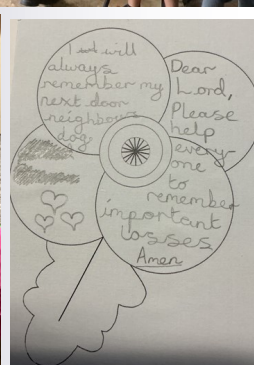 I will
always
remember my
next door
neighbours
dog.
Dear
Lord,
Please
help
every
one
to
remember
important
losses
Amen